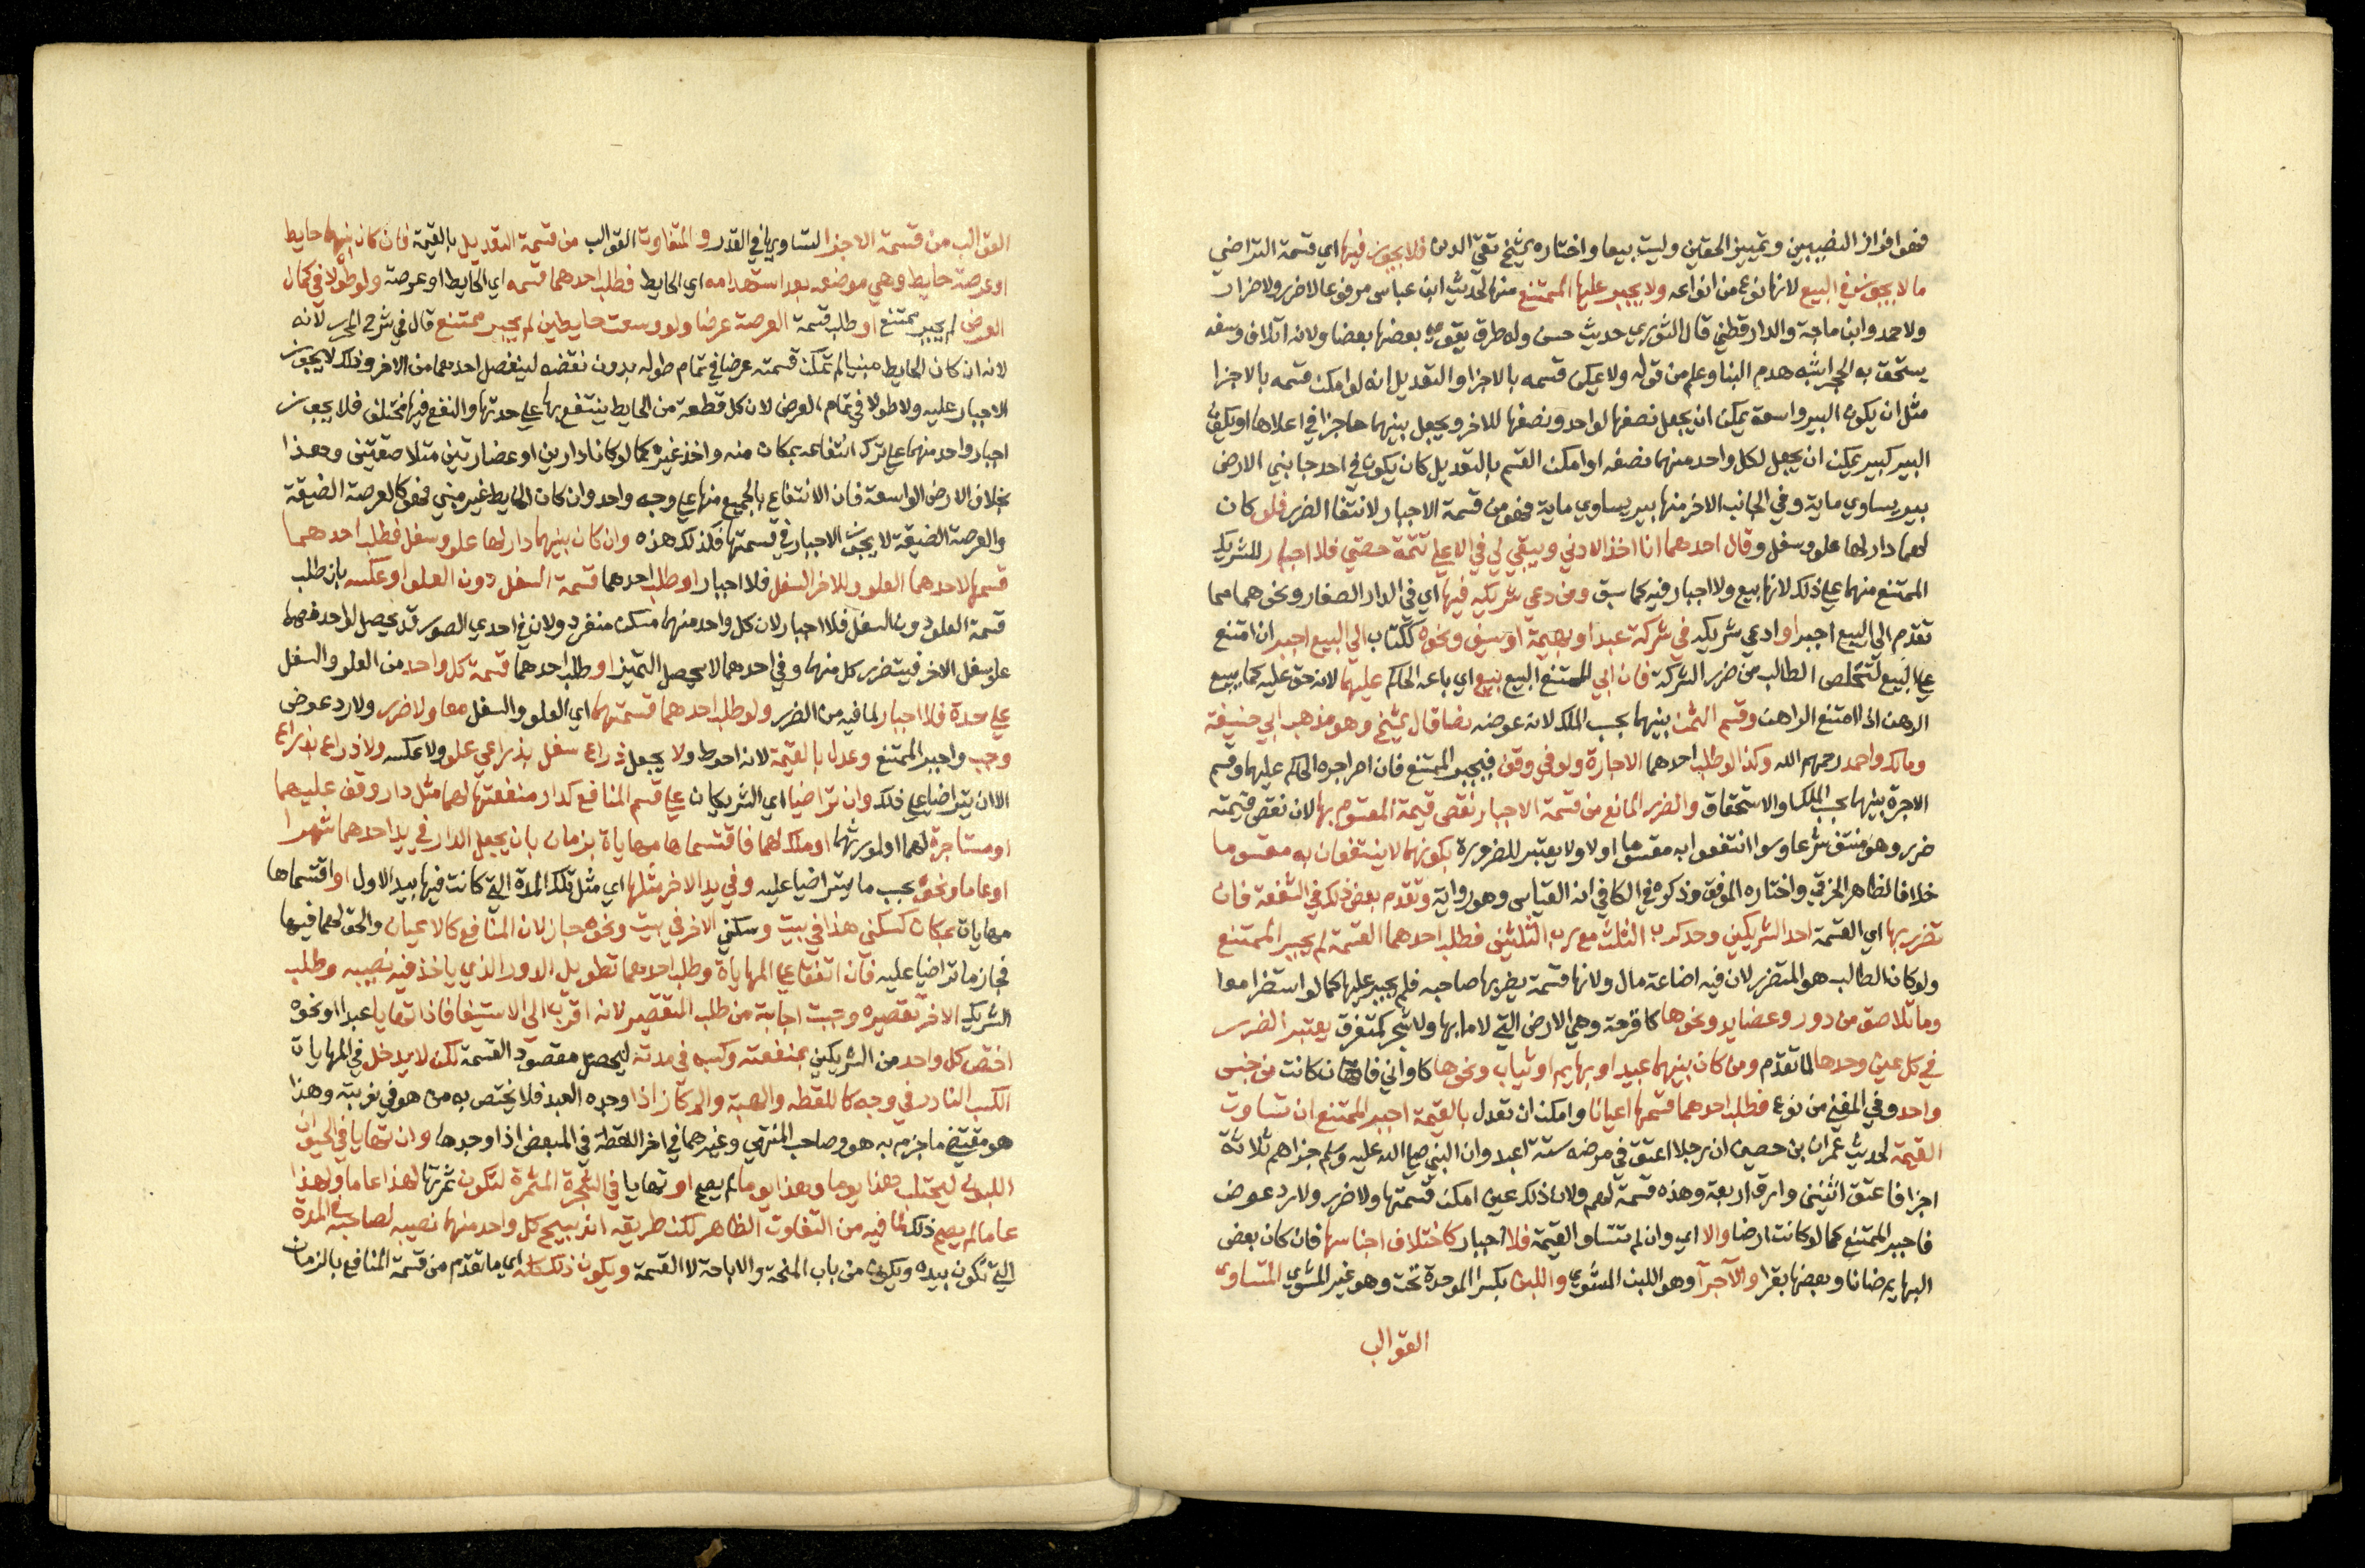 فهو افراز النصيبين وتمييز الحقين وليست بيعا واختاره الشيخ تقي الدين فلا يجوز فيها اي قسمة التراضي
ما لا يجوز في البيع لانها نوع من انواعه ولا يجبر عليها الممتنع منها لحديث ابن عباس مرفوعا لا ضرر ولا ضرار
رواه احمد وابن ماجة والدارقطني قال النووي حديث حسن وله طرق يقوي بعضها بعضا ولانه اتلاف وسفه
يستحق به الحجر اشبه هدم البنا وعلم من قوله ولا يمكن قسمه بالاجزا او التعديل انه لو امكن قسمه بالاجزا
مثل ان يكون البير واسعة يمكن ان يجعل نصفها لواحد ونصفها للاخر ويجعل بينهما حاجزا في اعلاها او يكون
البير كبير يمكن ان يجعل لكل واحد منهما نصفه او امكن القسم بالتعديل كان يكون في احد جانبي الارض
بير يساوي ماية وفي الجانب الاخر منها بير يساوي ماية فهو من قسمة الاجبار لانتفا الضرر فلو كان
لهما دار لها علو وسفل وقال احدهما انا اخذ الادنى ويبقى لي في الاعلى تتمة حصتي فلا اجبار للشريك
الممتنع منهما على ذلك لانها بيع ولا اجبار فيه كما سبق ومن دعي شريكه فيها اي في الدار الصغار ونحوهما مما
تقدم الى البيع اجبر او ادعي شريكه في شركة عبد او بهيمة او سيف ونحوه ككتاب الى البيع اجبر ان امتنع
على البيع لتخلص الطالب من ضرر الشركة فان ابى الممتنع البيع بيع اي باعه الحاكم عليهما لانه حق عليه كما يبيع
الرهن اذا امتنع الراهن وقسم الثمن بينهما بحسب الملك لانه عوضه نصا قال الشيخ وهو مذهب ابي حنيفة
ومالك واحمد رحمهم الله وكذا لو طلب احدهما الاجارة ولو في وقف فيجبر الممتنع فان اصر اجره الحاكم عليهما وقسم
الاجرة بينهما بحسب الملك او الاستحقاق والضرر المانع من قسمة الاجبار نقص قيمة المقسوم بها لان نقص قيمته
ضرر وهو منتف شرعا وسوا انتفعوا به مقسوما اولا ولا يعتبر الضرورة بكونهما لا ينتفعان به مقسوما
خلافا لظاهر الخرقي واختاره الموفق وذكره في الكافي انه القياس وهو رواية وتقدم بعض ذلك في الشفعة فان
تضرر بها اي القسمة احد الشريكين وحده كرب الثلث مع رب الثلثين فطلب احدهما القسمة لم يجبر الممتنع
ولو كان الطالب هو المتضرر لان فيه اضاعة مال ولانها قسمة يضر بها صاحبه فلم يجبر عليها كما لو استضرا معا
وما تلاصق من دور وعضايد ونحوها كاقرحة وهي الارض التي لا ما بها ولا شجر كمتفرق يعتبر الضرر
في كل عين وحدها لما تقدم ومن كان بينهما عبيد او بهايم او ثياب ونحوها كاواني فان كانت من جنس
واحد وفي المغني من نوع فطلب احدهما قسمها اعيانا وامكن ان تعدل بالقيمة اجبر الممتنع ان تساوت
القيمة لحديث عمران بن حصين ان رجلا اعتق في مرضه ستة اعبد وان النبي صلى الله عليه وسلم جزاهم ثلاثة
اجزا فاعتق اثنين وارق اربعة وهذه قسمة لهم ولان ذلك عين امكن قسمتها ولا ضرر ولا رد عوض
فاجبر الممتنع كما لو كانت ارضا والا اي وان لم تتساو القيمة فلا اجبار كاختلاف اجناسها فان كان بعض
البهايم ضانا وبعضها بقرا والآجر آ وهو اللبن المشوي واللبن بكسر الموحدة تحت وهو غير المشوي المتساوي
القوالب
القوالب من قسمة الاجزا لتساويها في القدر والمتفاوت القوالب من قسمة التعديل بالقيمة فان كان بينهما حايط
او عرصة حايط وهي موضعه بعد استهدامه اي الحايط فطلب احدهما قسمه اي الحايط او عرصة ولو طولا في كمال
العرض لم يجبر ممتنع او طلب قسمة العرصة عرضا ولو وسعت حايطين لم يجبر ممتنع قال في شرح المحرر لانه
لانه ان كان الحايط مبنيا لم تمكن قسمته عرضا في تمام طوله بدون نقضه لينفصل احدهما من الاخر وذلك لا يجوز
الاجبار عليه ولا طولا في تمام العرض لان كل قطعة من الحايط ينتفع بها على حدتها والنفع فيها مختلف فلا يجوز
اجبار واحد منهما على ترك انتفاعه بمكان منه واخذ غيره كما لو كانا دارين او عضادتين متلاصقتين وهذا
بخلاف الارض الواسعة فان الانتفاع بالجميع منها على وجه واحد وان كان الحايط غير مبني فهو كالعرصة الضيقة
والعرصة الضيقة لا يجوز الاجبار في قسمتها فكذلك هذه وان كان بينهما دار لها علو وسفل فطلب احدهما
قسمها لاحدهما العلو وللاخر السفل فلا اجبار او طلب احدهما قسمة السفل دون العلو او عكسه بان طلب
قسمة العلو دون السفل فلا اجبار لان كل واحد منهما مسكن منفرد ولان في احدى الصور قد يحصل لواحد منهما
علو سفل الاخر فيتضرر كل منهما وفي احدهما لا يحصل التميز او طلب احدهما قسمة كل واحد من العلو والسفل
على حدة فلا اجبار لما فيه من الضرر ولو طلب احدهما قسمتهما اي العلو والسفل معا ولا ضرر ولا رد عوض
وجب واجبر الممتنع وعدل بالقيمة لانه احوط ولا يجعل ذراع سفل بذراعي علو ولا عكسه ولا ذراع بذراع
الا ان يتراضيا على ذلك وان تراضيا اي الشريكان على قسم المنافع كدار منفعتها لهما مثل دار وقف عليهما
او مستاجرة لهما او لمورثهما او ملك لهما فاقتسماها مهاياة بزمان بان يجعل الدار في يد احدهما شهرا
او عاما ونحوه بحسب ما يتراضيا عليه وفي يد الاخر مثلها اي مثل تلك المدة التي كانت فيها بيد الاول او اقتسماها
مهاياة بمكان كسكنى هذا في بيت وسكنى الاخر في بيت ونحوه جاز لان المنافع كالاعيان والحق لهما فيها
فجاز ما تراضيا عليه فان اتفقا على المهاياة وطلب احدهما تطويل الدور الذي ياخذ فيه نصيبه وطلب
الشريك الاخر تقصيره وجبت اجابة من طلب التقصير لانه اقرب الى الاستيفا فاذا تهايا عبدا ونحوه
اختص كل واحد من الشريكين بمنفعته وكسبه في مدته ليحصل مقصود القسمة لكن لا يدخل في المهايات
الكسب النادر في وجه كاللقطه والهبة والركاز اذا وجده العبد فلا يختص به من هو في نوبته وهذا
هو مقتضى ما جزم به هو وصاحب المنتهى وغيرهما في اخر اللقطة في المبعض اذا وجدها وان تهايا في الحيوان
اللبون ليحتلب هذا يوما وهذا يوما لم يصح او تهايا في الشجرة المثمرة لتكون ثمرتها لهذا عاما ولهذا
عاما لم يصح ذلك لما فيه من التفاوت الظاهر لكن طريقه انه يبيح كل واحد منهما نصيبه لصاحبه في المدة
التي تكون بيده ويكون من باب المنحة والاباحة لا القسمة ويكون ذلك كله اي ما تقدم من قسمة المنافع بالزمان